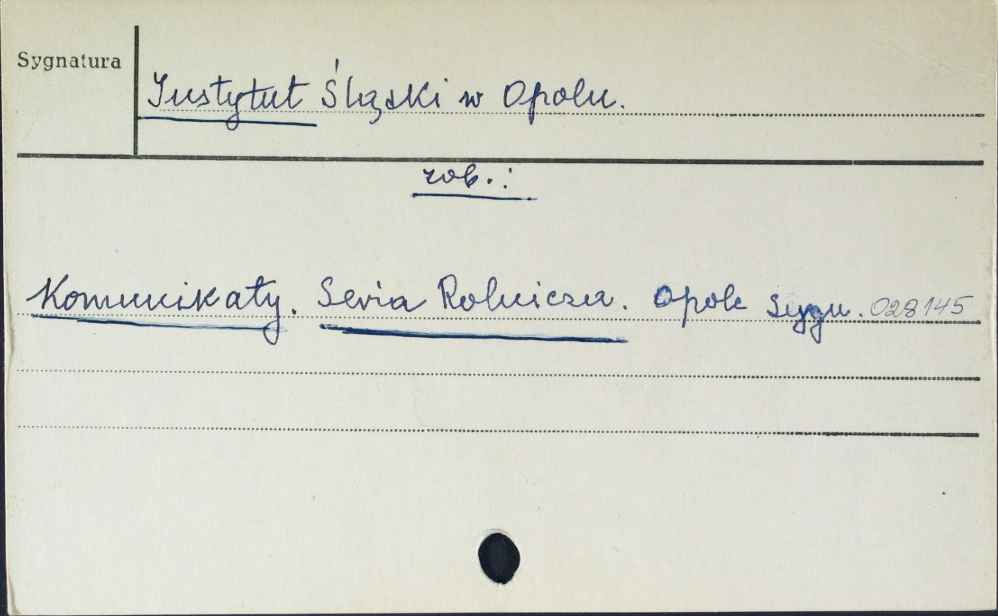 Sygnatura
Instytut Śląski w Opolu.
zob. :
Komunikaty. Seria Rolnicza. Opole Sygn. 028145